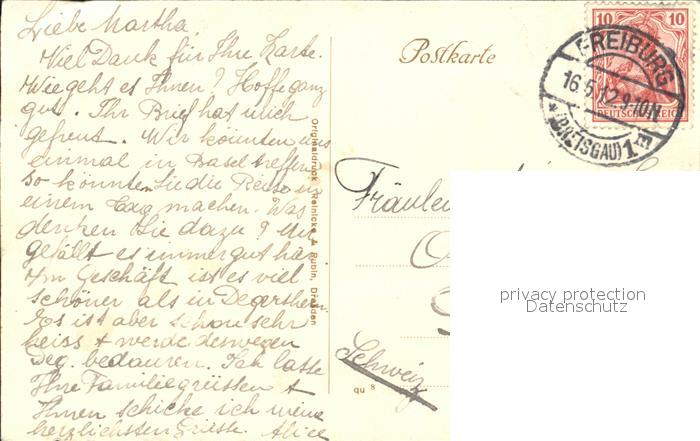 Liebe Martha,
Viel Dank für Ihre Karte.
Wie geht es Ihnen? Hoffe ganz
gut. Ihr Brief hat mich
gefreut. Wir könnten uns
einmal in Basel treffen
so könnten Sie die Reise in
einem Tag machen. Was
denken Sie dazu? Mir
gefällt es immer gut hier
Im Geschäft ist es viel
schöner als in Degersheim
Es ist aber schon sehr
heiss & werde deswegen
Deg. bedauren. Ich lasse
Ihre Familie grüssen &
Ihnen schicke ich meine
herzlichsten Grüsse. Alice
Originaldruck Reinicke & Rubin, Dresden
Postkarte
10 10
DEUTSCHES REICH
FREIBURG
16.5.12.9-10N.
* (BREISGAU) 1
Fräulein
Schweiz
qu 8
privacy protection
Datenschutz